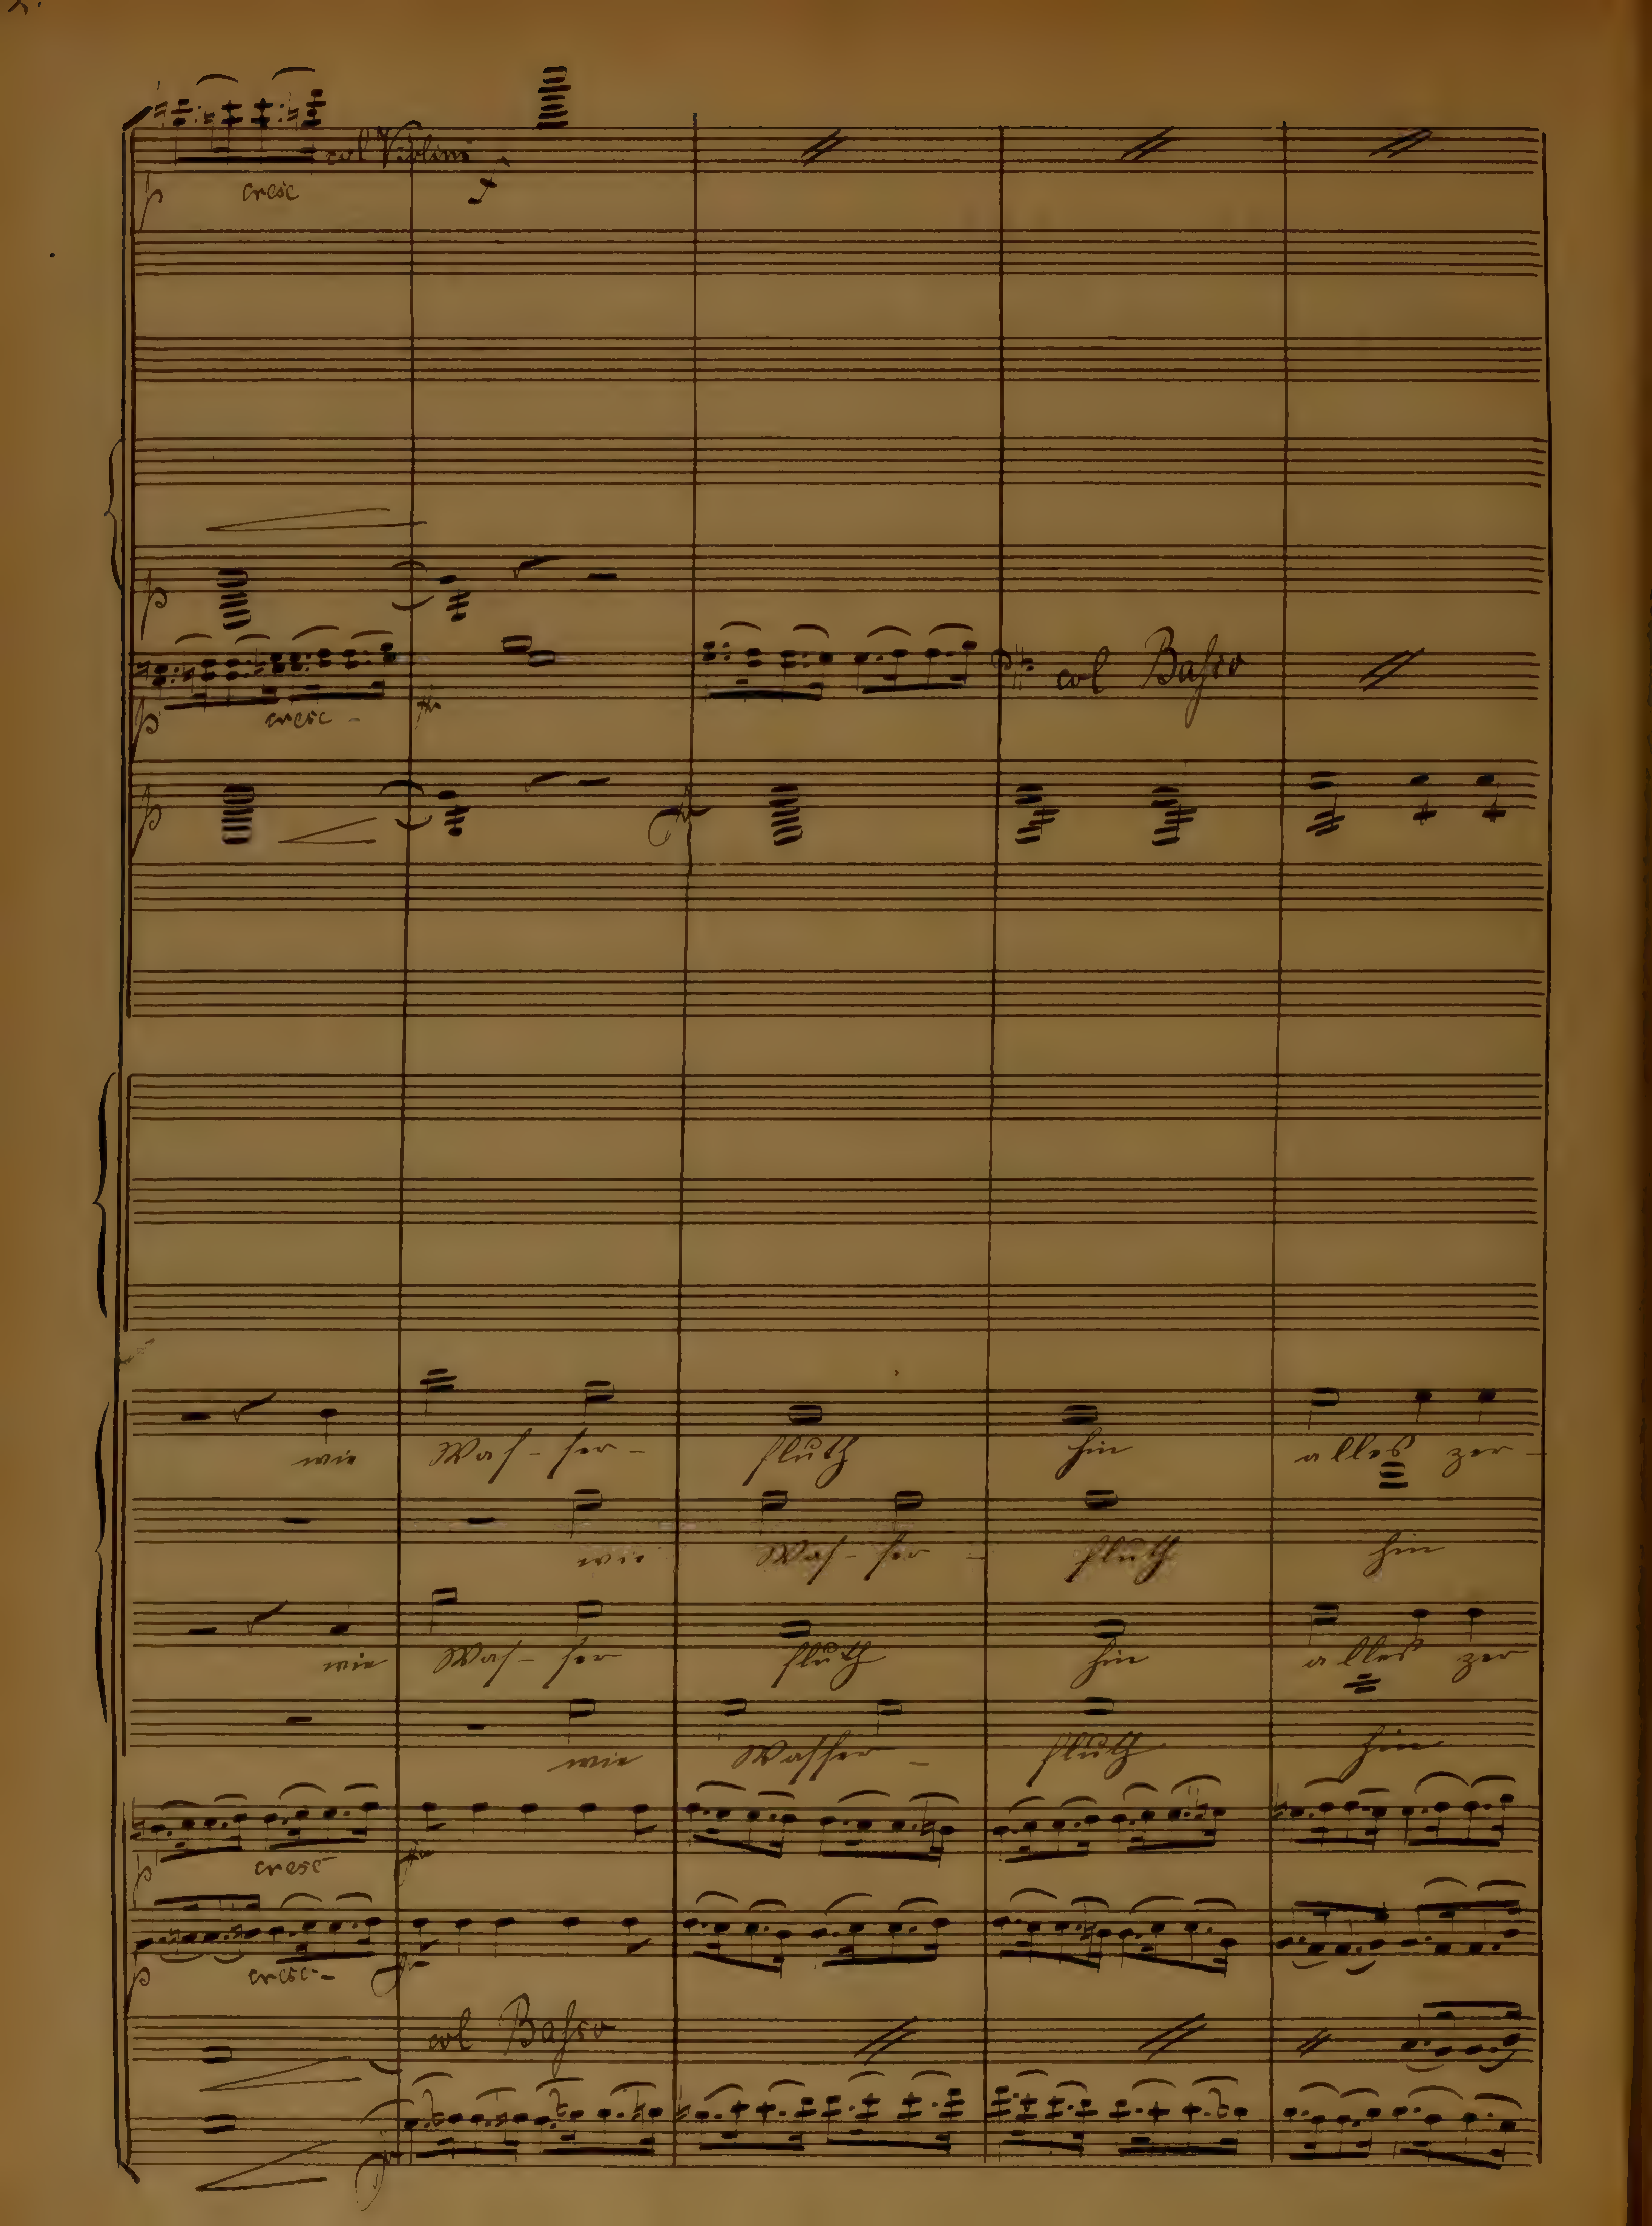 2.
col Violini
p cresc f
p
p cresc - fr
col Basso
p
wie Was - ser - fluth hin alles zer -
wie Was - ser - fluth hin
wie Was - ser fluth hin alles zer
wie Wasser - fluth hin
p cresc
p cresc -
col Basso